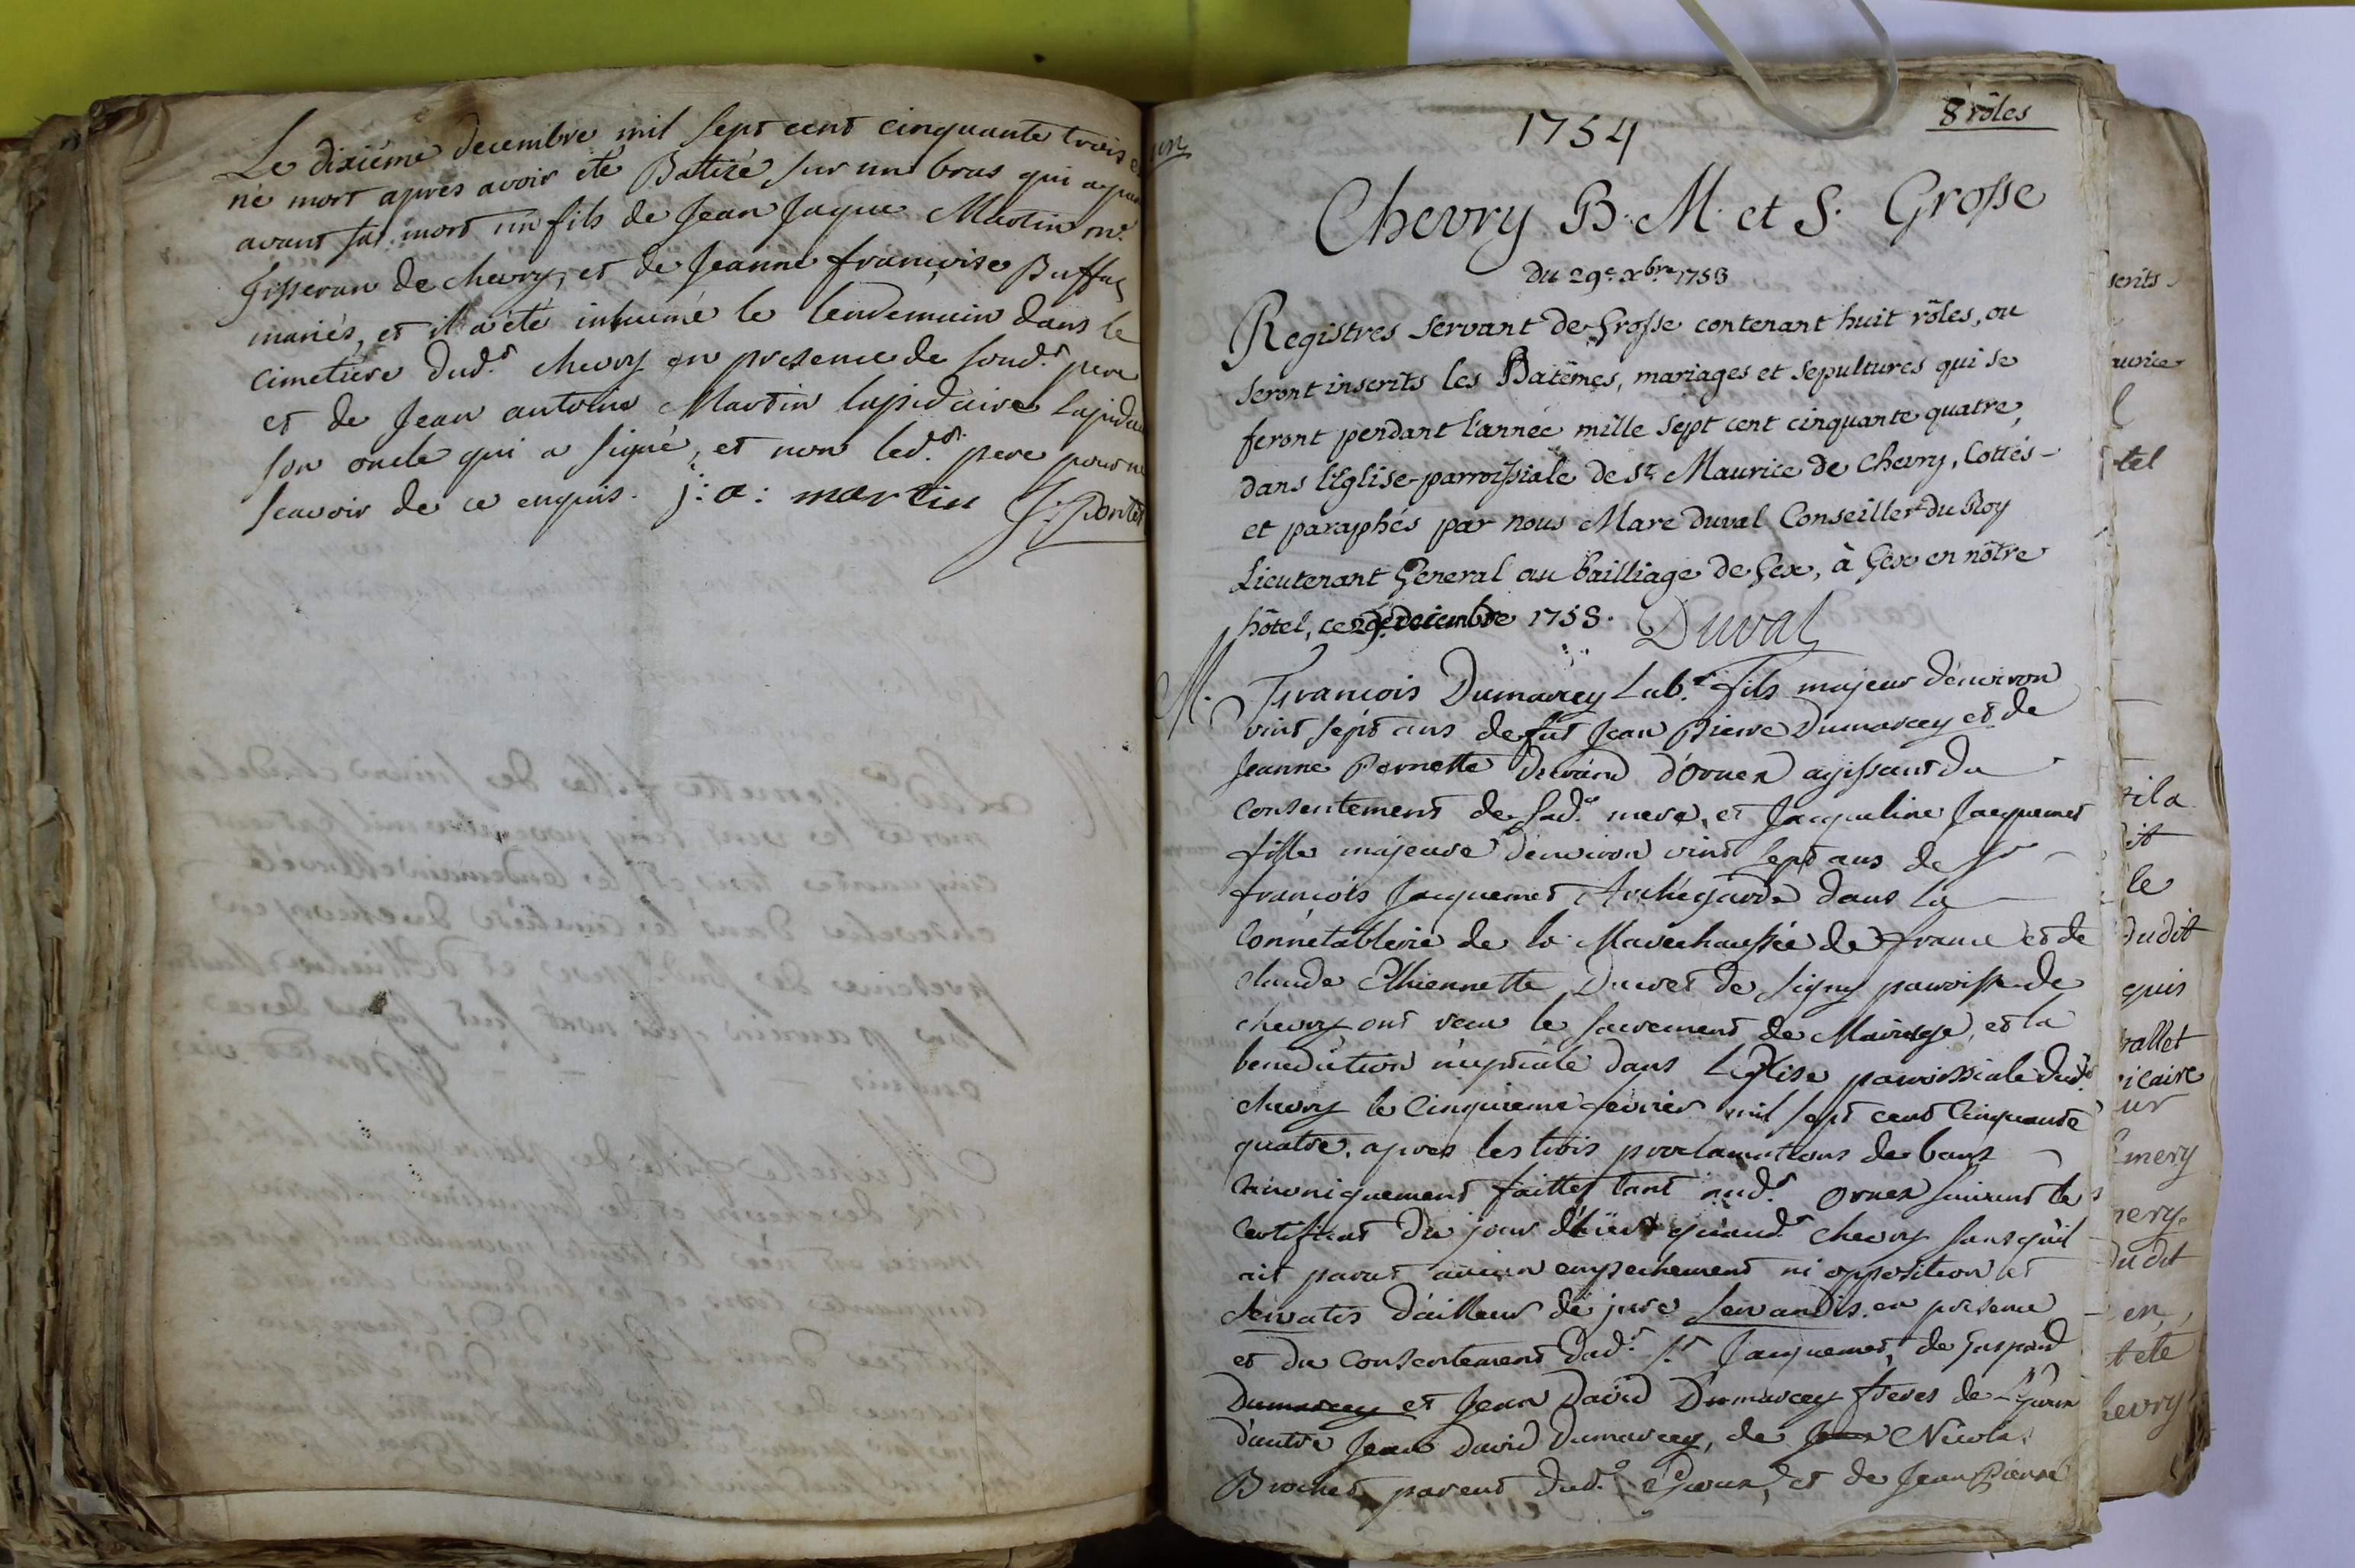 Le dixiéme decembre mil sept cent cinquante trois
né mort apres avoir été Batizé sur un bras qui a paru
avant sa mort un fils de Jean Jaque Martin me
Tisseran de chevry, et de Jeanne françoise Buffat
mariés, et il a été inhumé le lendemain dans le
cimetiere dudt chevry en presence de sondt pere
et de Jean antoine Martin lapidaire
son oncle qui a signé, et non ledt pere pour ne
scavoir de ce enquis. j: a: martin
1754
8 rôles
Chevry B. M. et S. Grosse
Du 29e Xbre 1753
Registres servant de Grosse contenant huit rôles, ou
seront inscrits les Batêmes, mariages et sepultures qui se
feront pendant l'année mille sept cent cinquante quatre,
dans l'Eglise parroissiale de St Maurice de Chevry, Cottés
et paraphés par nous Marc Duval Conseiller du Roy
Lieutenant General au bailliage de Gex, à Gex en nôtre
hôtel, ce 29e decembre 1753. Duval
M. François Dumarcey Labr fils majeur d'environ
vint sept ans de fut Jean Pierre Dumarcey et de
Jeanne Pernette d'Ornex agissant du
consentement de sade mere, et Jacqueline Jacquemet
fille majeure d'environ vint sept ans de Sr
françois Jacquemet Archigarde dans la
Connétablerie de la Marechaussée de france et de
claude Ethiennette Ducret de Signy parroisse de
chevry ont recu le sacrement de Mariage, et la
benediction nuptiale dans L'Eglise parroissiale dudt
chevry le Cinquieme fevrier mil sept cent Cinquante
quatre, apres les trois proclamations de bans
canoniquement faittes tant audt Ornex suivant le
certificat du jour d'hier qu'audt chevry sans qu'il
ait parut aucun empechement ni opposition et
servatis d'ailleur de jure servandis. en presence
et du consentement dudt Sr Jacquemet, de gaspard
Dumarcey et Jean David Dumarcey freres de L'Epoux
d'autre Jean David Dumarcey, de Jean Nicolas
Brochet parent dudt Epoux, et de Jean Pierre